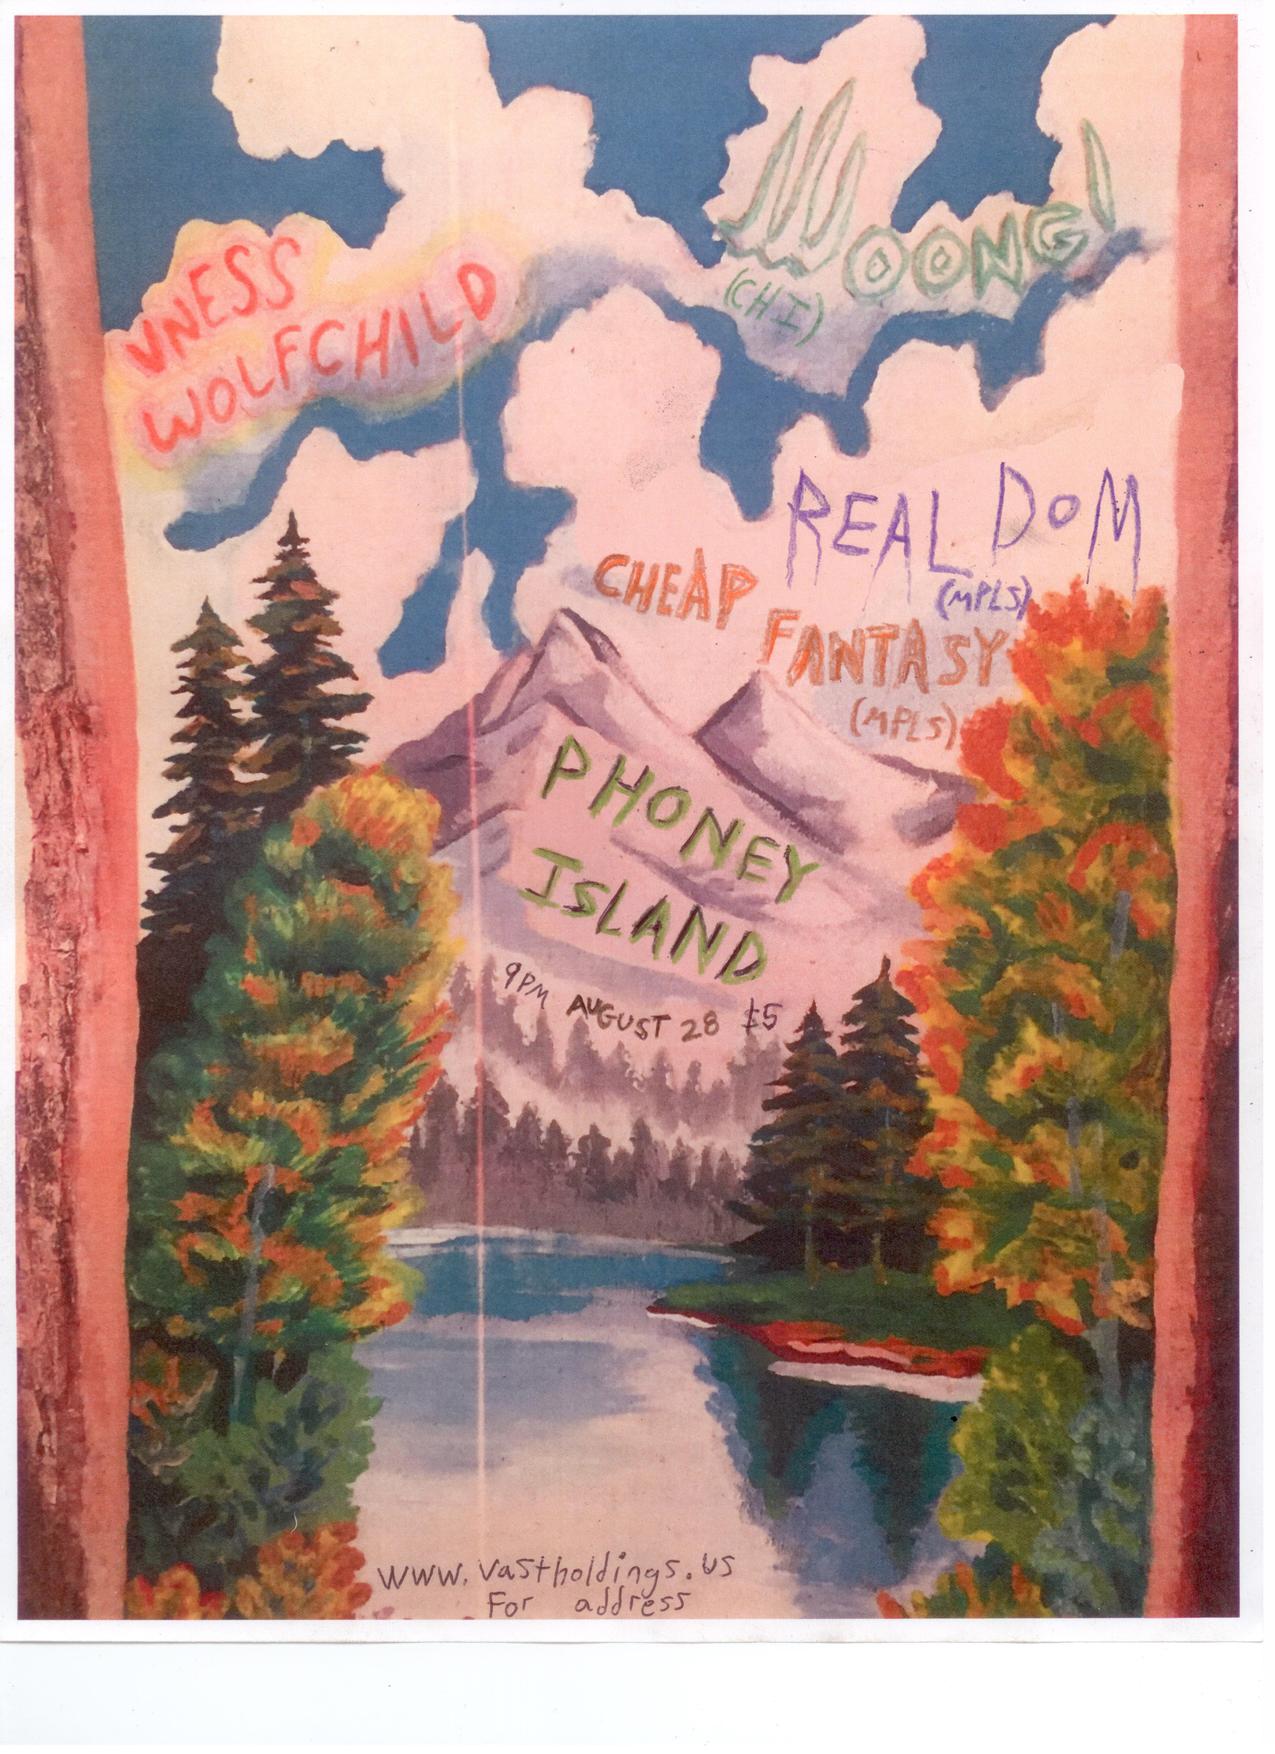 VNESS
WOLFCHILD
WOONG!
(CHI)
REAL DOM
(MPLS)
CHEAP
FANTASY
(MPLS)
PHONEY
ISLAND
9PM AUGUST 28 $5
www.vastholdings.us
For address